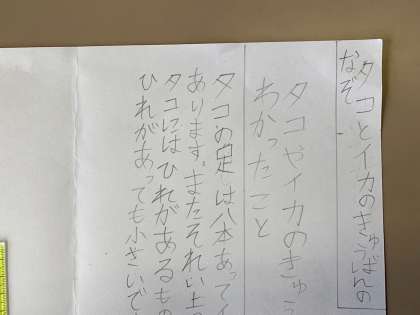 タコとイカのきゅうばんの
なぞ
タコやイカのきゅう
わかったこと
タコの足は八本あってイ
あります。またそれい上の
タコにはひれがあるもの
ひれがあっても小さいで